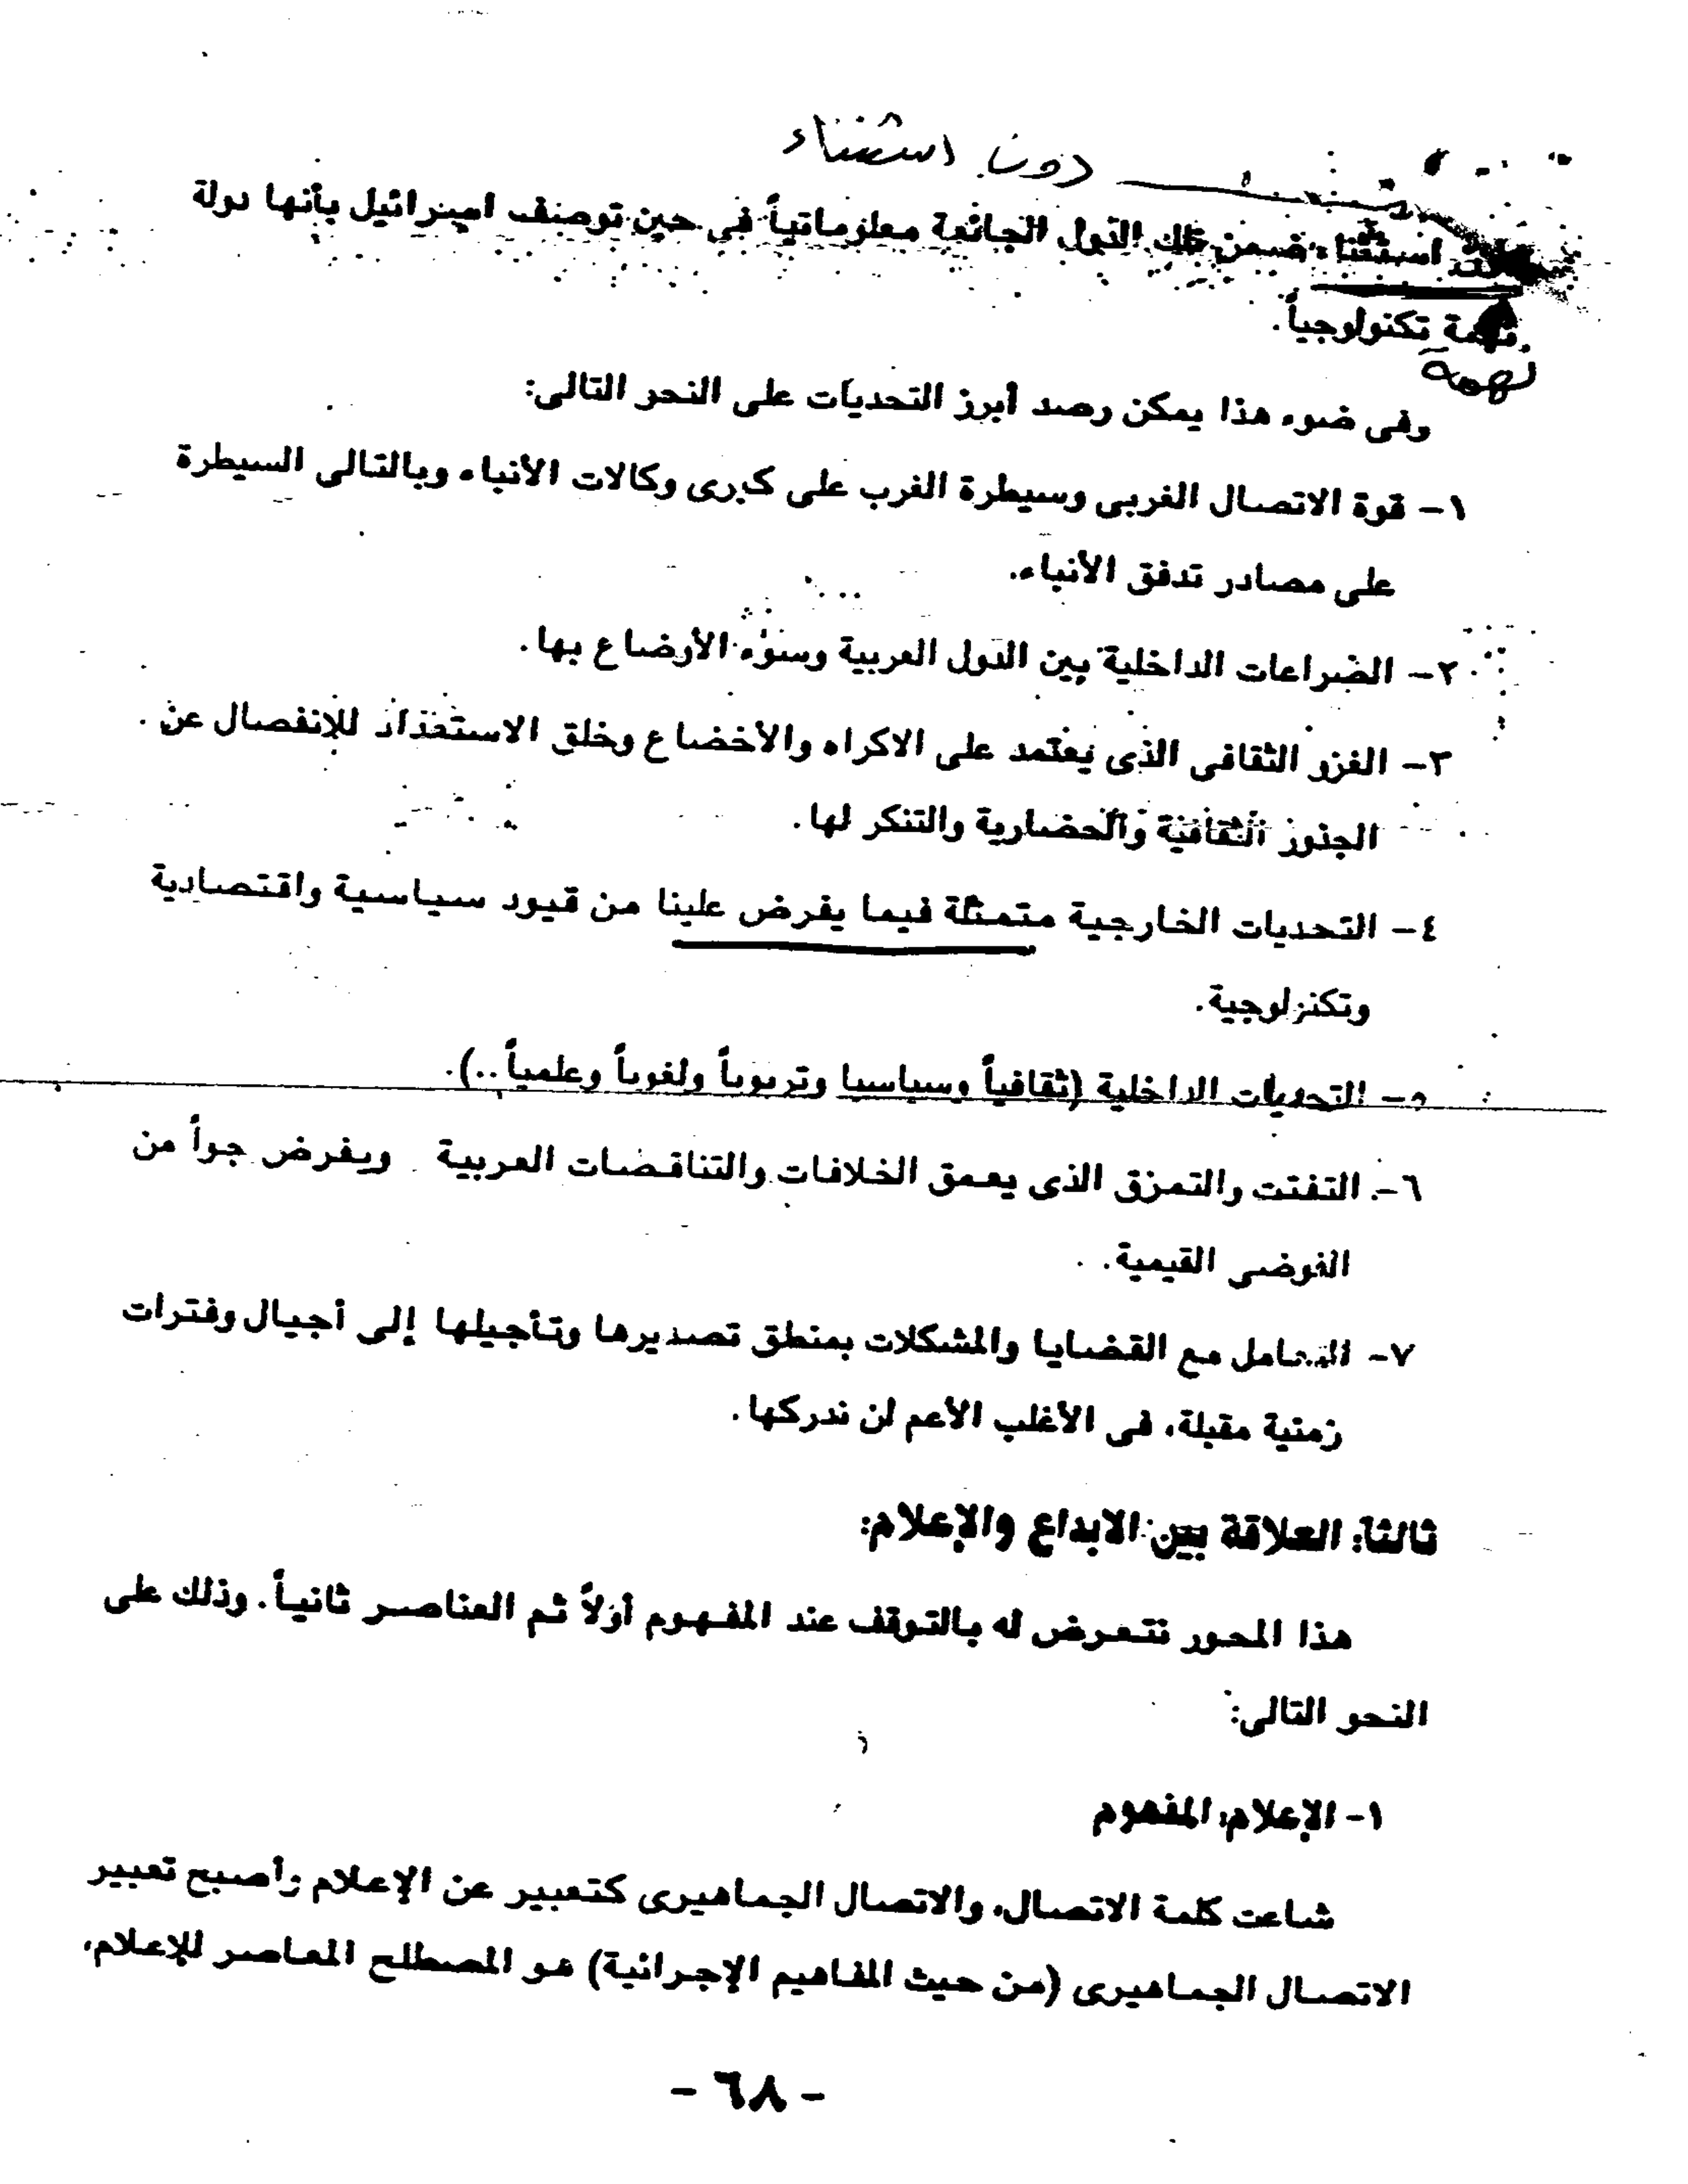 دون استثناء
استثناء ضمن تلك الدول الجائعة معلوماتياً فى حين توصف اسرائيل بأنها دولة
تكنولوجياً.
نهمة
وفى ضوء هذا يمكن رصد أبرز التحديات على النحو التالى:
١- قوة الاتصال الغربى وسيطرة الغرب على كبرى وكالات الأنباء وبالتالى السيطرة
على مصادر تدفق الأنباء.
٢- الصراعات الداخلية بين الدول العربية وسوء الأوضاع بها.
٣- الغزو الثقافى الذى يعتمد على الاكراه والأخضاع وخلق الاستعداد للإنفصال عن
الجذور الثقافية والحضارية والتنكر لها.
٤- التحديات الخارجية متمثلة فيما يفرض علينا من قيود سياسية واقتصادية
وتكنولوجية.
٥- التحديات الداخلية (ثقافياً وسياسيا وتربوياً ولغوياً وعلمياً..).
٦- التفتت والتمزق الذى يعمق الخلافات والتناقضات العربية ويفرض جواً من
الفوضى القيمية.
٧- التعامل مع القضايا والمشكلات بمنطق تصديرها وتأجيلها إلى أجيال وفترات
زمنية مقبلة، فى الأغلب الأعم لن ندركها.
ثالثا: العلاقة بين الابداع والإعلام:
هذا المحور نتعرض له بالتوقف عند المفهوم أولاً ثم العناصر ثانياً. وذلك على
النحو التالى:
١- الإعلام: المفهوم
شاعت كلمة الاتصال، والاتصال الجماهيرى كتعبير عن الإعلام وأصبح تعبير
الاتصال الجماهيرى (من حيث المفاهيم الإجرائية) هو المصطلح المعاصر للإعلام،
- ٦٨ -